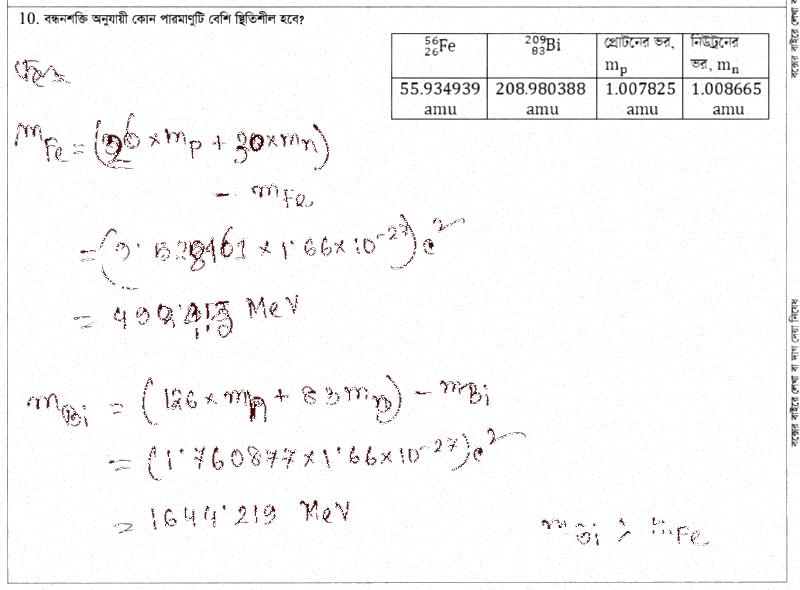 10. বন্ধনশক্তি অনুযায়ী কোন পারমাণুটি বেশি স্থিতিশীল হবে?
⁵⁶₂₆Fe ²⁰⁹₈₃Bi প্রোটনের ভর, mₚ নিউট্রনের ভর, mₙ
55.934939 amu 208.980388 amu 1.007825 amu 1.008665 amu
m_Fe = (26 × mₚ + 30 × mₙ)
- m_Fe
= (0.528461 × 1.66 × 10⁻²⁷) c²
MeV
m_Bi = (126 × mₙ + 83 mₚ) - m_Bi
= (1.760877 × 1.66 × 10⁻²⁷) c²
= 1644.219 MeV
m_Bi > m_Fe
বক্সের বাইরে লেখা বা দাগ দেয়া নিষেধ